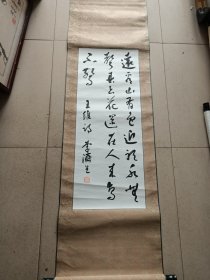 遠看山有色近聽水無
聲春去花還在人來鳥
不驚
王維詩